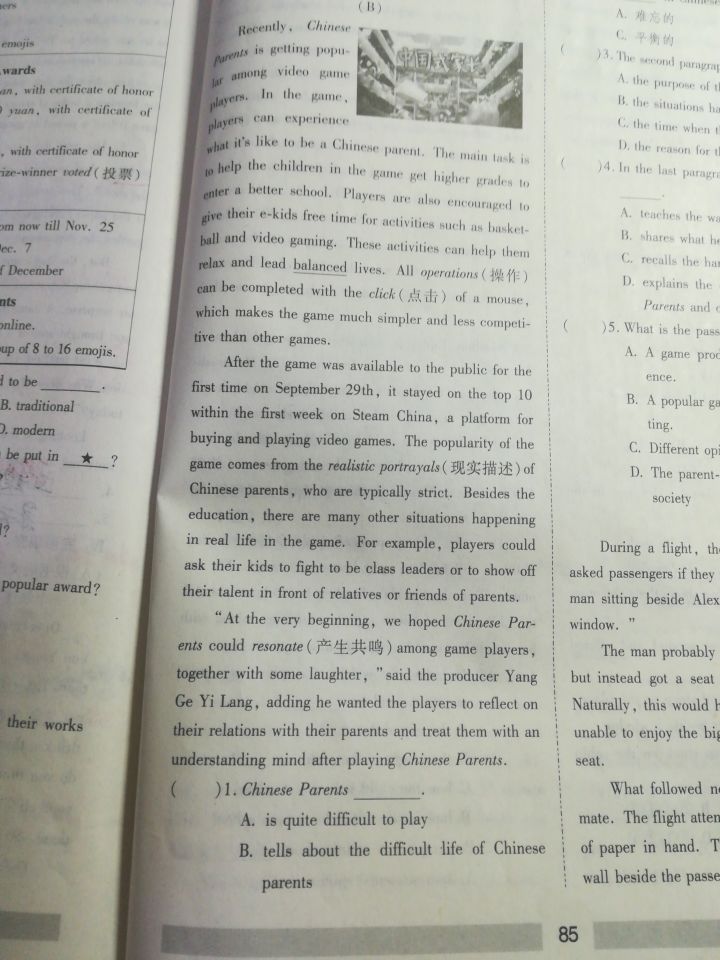 emojis
wards
an, with certificate of honor
yuan, with certificate of
, with certificate of honor
ize-winner voted(投票)
om now till Nov. 25
ec. 7
f December
nts
online.
up of 8 to 16 emojis.
d to be ________.
B. traditional
D. modern
be put in ★ ?
popular award?
their works
(B)
Recently, Chinese
Parents is getting popu-
lar among video game
players. In the game,
players can experience
中国式家长
what it's like to be a Chinese parent. The main task is
to help the children in the game get higher grades to
enter a better school. Players are also encouraged to
give their e-kids free time for activities such as basket-
ball and video gaming. These activities can help them
relax and lead balanced lives. All operations(操作)
can be completed with the click(点击) of a mouse,
which makes the game much simpler and less competi-
tive than other games.
After the game was available to the public for the
first time on September 29th, it stayed on the top 10
within the first week on Steam China, a platform for
buying and playing video games. The popularity of the
game comes from the realistic portrayals(现实描述)of
Chinese parents, who are typically strict. Besides the
education, there are many other situations happening
in real life in the game. For example, players could
ask their kids to fight to be class leaders or to show off
their talent in front of relatives or friends of parents.
"At the very beginning, we hoped Chinese Par-
ents could resonate(产生共鸣)among game players,
together with some laughter,"said the producer Yang
Ge Yi Lang, adding he wanted the players to reflect on
their relations with their parents and treat them with an
understanding mind after playing Chinese Parents.
( )1. Chinese Parents ________.
A. is quite difficult to play
B. tells about the difficult life of Chinese
parents
85
A. 难忘的
C. 平衡的
( )3. The second paragrap
A. the purpose of th
B. the situations ha
C. the time when t
D. the reason for t
( )4. In the last paragra
________.
A. teaches the wa
B. shares what he
C. recalls the har
D. explains the
Parents and
( )5. What is the pass
A. A game prod
ence.
B. A popular ga
ting.
C. Different opi
D. The parent-
society
During a flight, the
asked passengers if they
man sitting beside Alex
window."
The man probably
but instead got a seat
Naturally, this would h
unable to enjoy the big
seat.
What followed ne
mate. The flight atten
of paper in hand. T
wall beside the passe